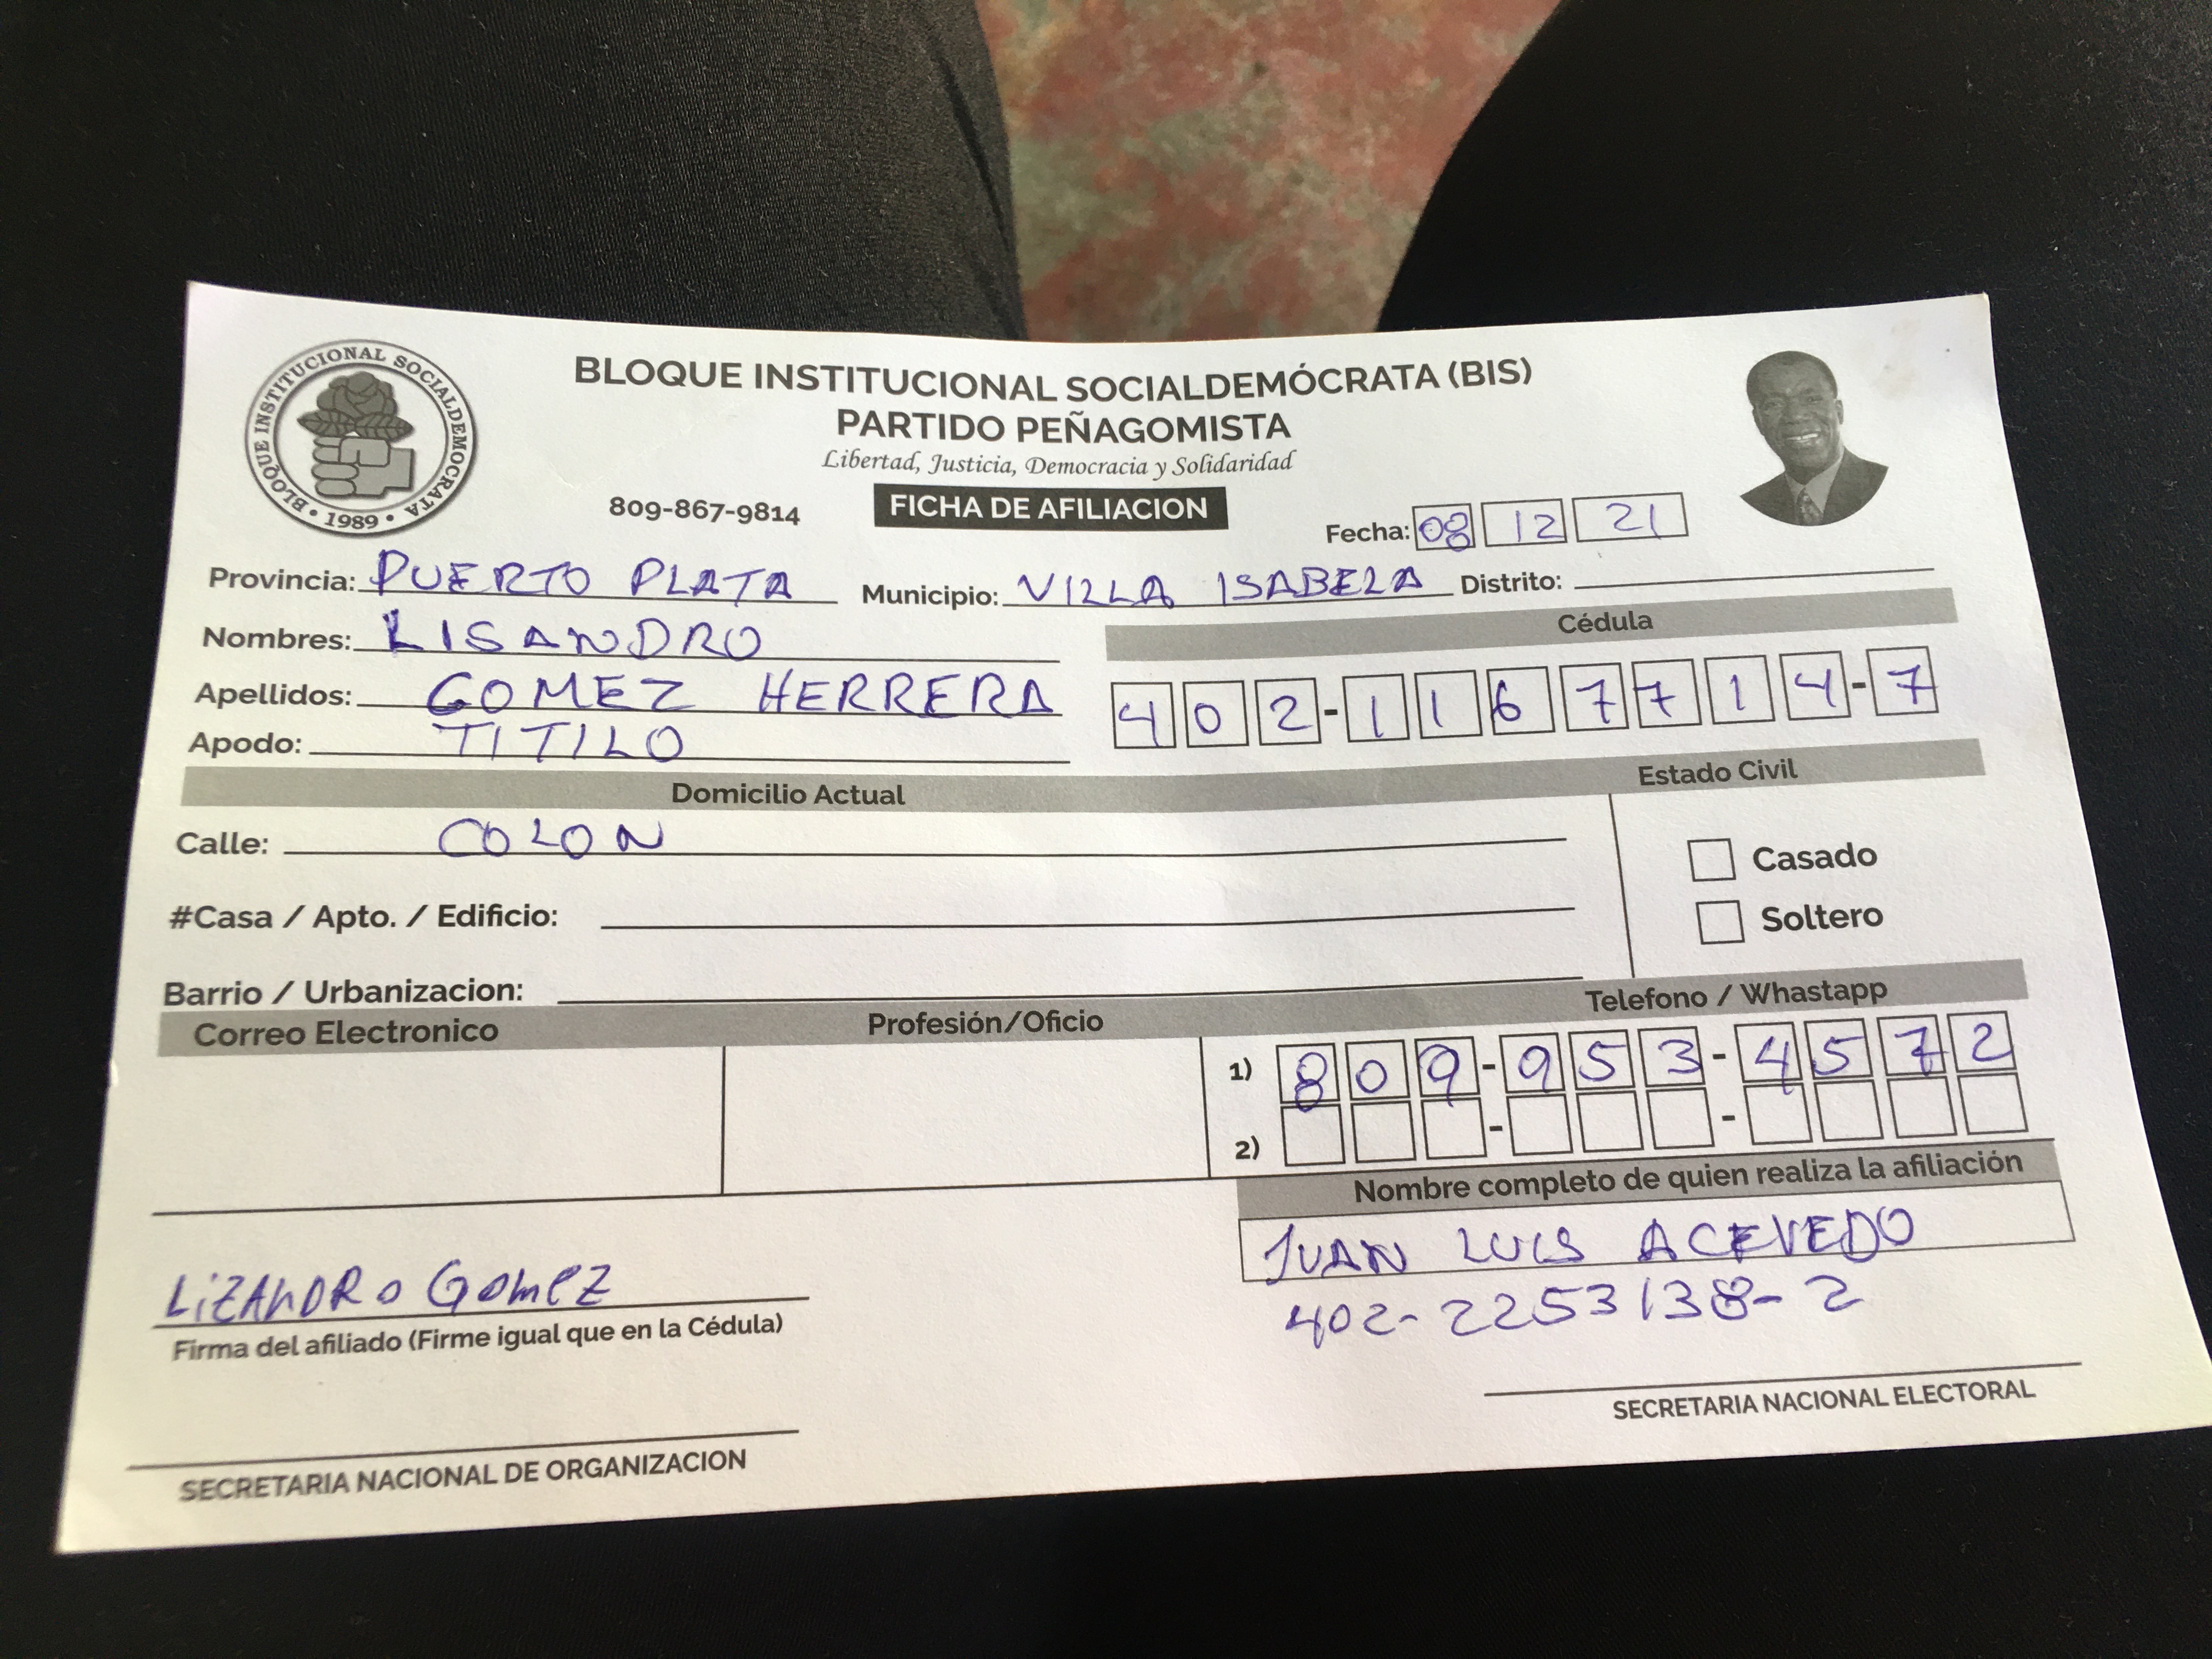 BLOQUE INSTITUCIONAL SOCIALDEMOCRATA • 1989 •
BLOQUE INSTITUCIONAL SOCIALDEMÓCRATA (BIS)
PARTIDO PEÑAGOMISTA
Libertad, Justicia, Democracia y Solidaridad
809-867-9814 FICHA DE AFILIACION Fecha: 08 12 21
Provincia: PUERTO PLATA Municipio: VILLA ISABELA Distrito:
Nombres: LISANDRO Cédula
Apellidos: GOMEZ HERRERA 402-1167714-7
Apodo: TITILO
Domicilio Actual Estado Civil
Calle: COLON Casado
#Casa / Apto. / Edificio: Soltero
Barrio / Urbanizacion:
Correo Electronico Profesión/Oficio Telefono / Whastapp
1) 809-953-4572
2) - -
Nombre completo de quien realiza la afiliación
JUAN LUIS ACEVEDO
402-2253138-2
LiZANDRO GomeZ
Firma del afiliado (Firme igual que en la Cédula)
SECRETARIA NACIONAL ELECTORAL
SECRETARIA NACIONAL DE ORGANIZACION